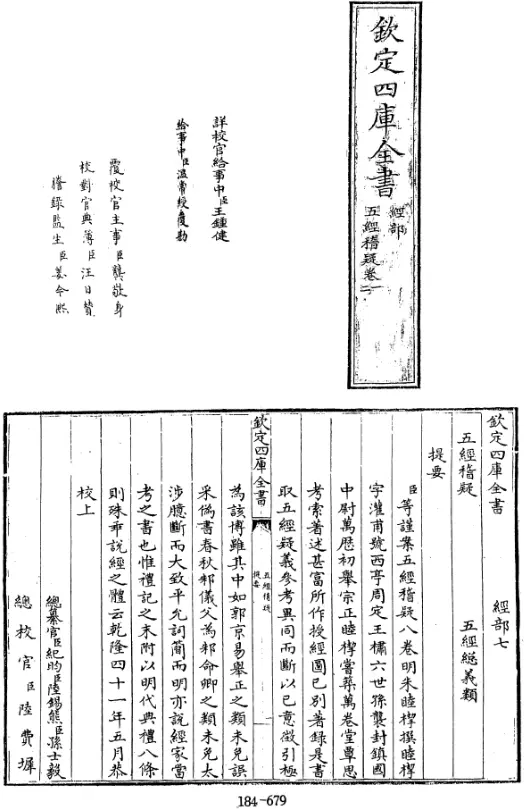 欽定四庫全書
經部
五經稽疑卷一
詳校官給事中臣王鍾健
給事中臣溫常綬覆勘
覆校官主事臣龔敬身
校對官典簿臣汪日贊
謄錄監生臣姜令熙
欽定四庫全書 經部七
五經稽疑 五經總義類
提要
臣等謹案五經稽疑八卷明朱睦㮮撰睦㮮
字灌甫號西亭周定王橚六世孫襲封鎮國
中尉萬厯初舉宗正睦㮮嘗築萬卷堂覃思
考索著述甚富所作授經圖已别著錄是書
取五經疑義參考異同而斷以已意徵引極
欽定四庫全書
五經稽疑
提要
為該博雖其中如郭京易舉正之類未免誤
采偽書春秋邾儀父為邾命卿之類未免太
涉臆斷而大致平允詞簡而明亦説經家當
考之書也惟禮記之末附以明代典禮八條
則殊乖説經之體云乾隆四十一年五月恭
校上
總纂官臣紀昀臣陸錫熊臣孫士毅
總校官臣陸費墀
184-679